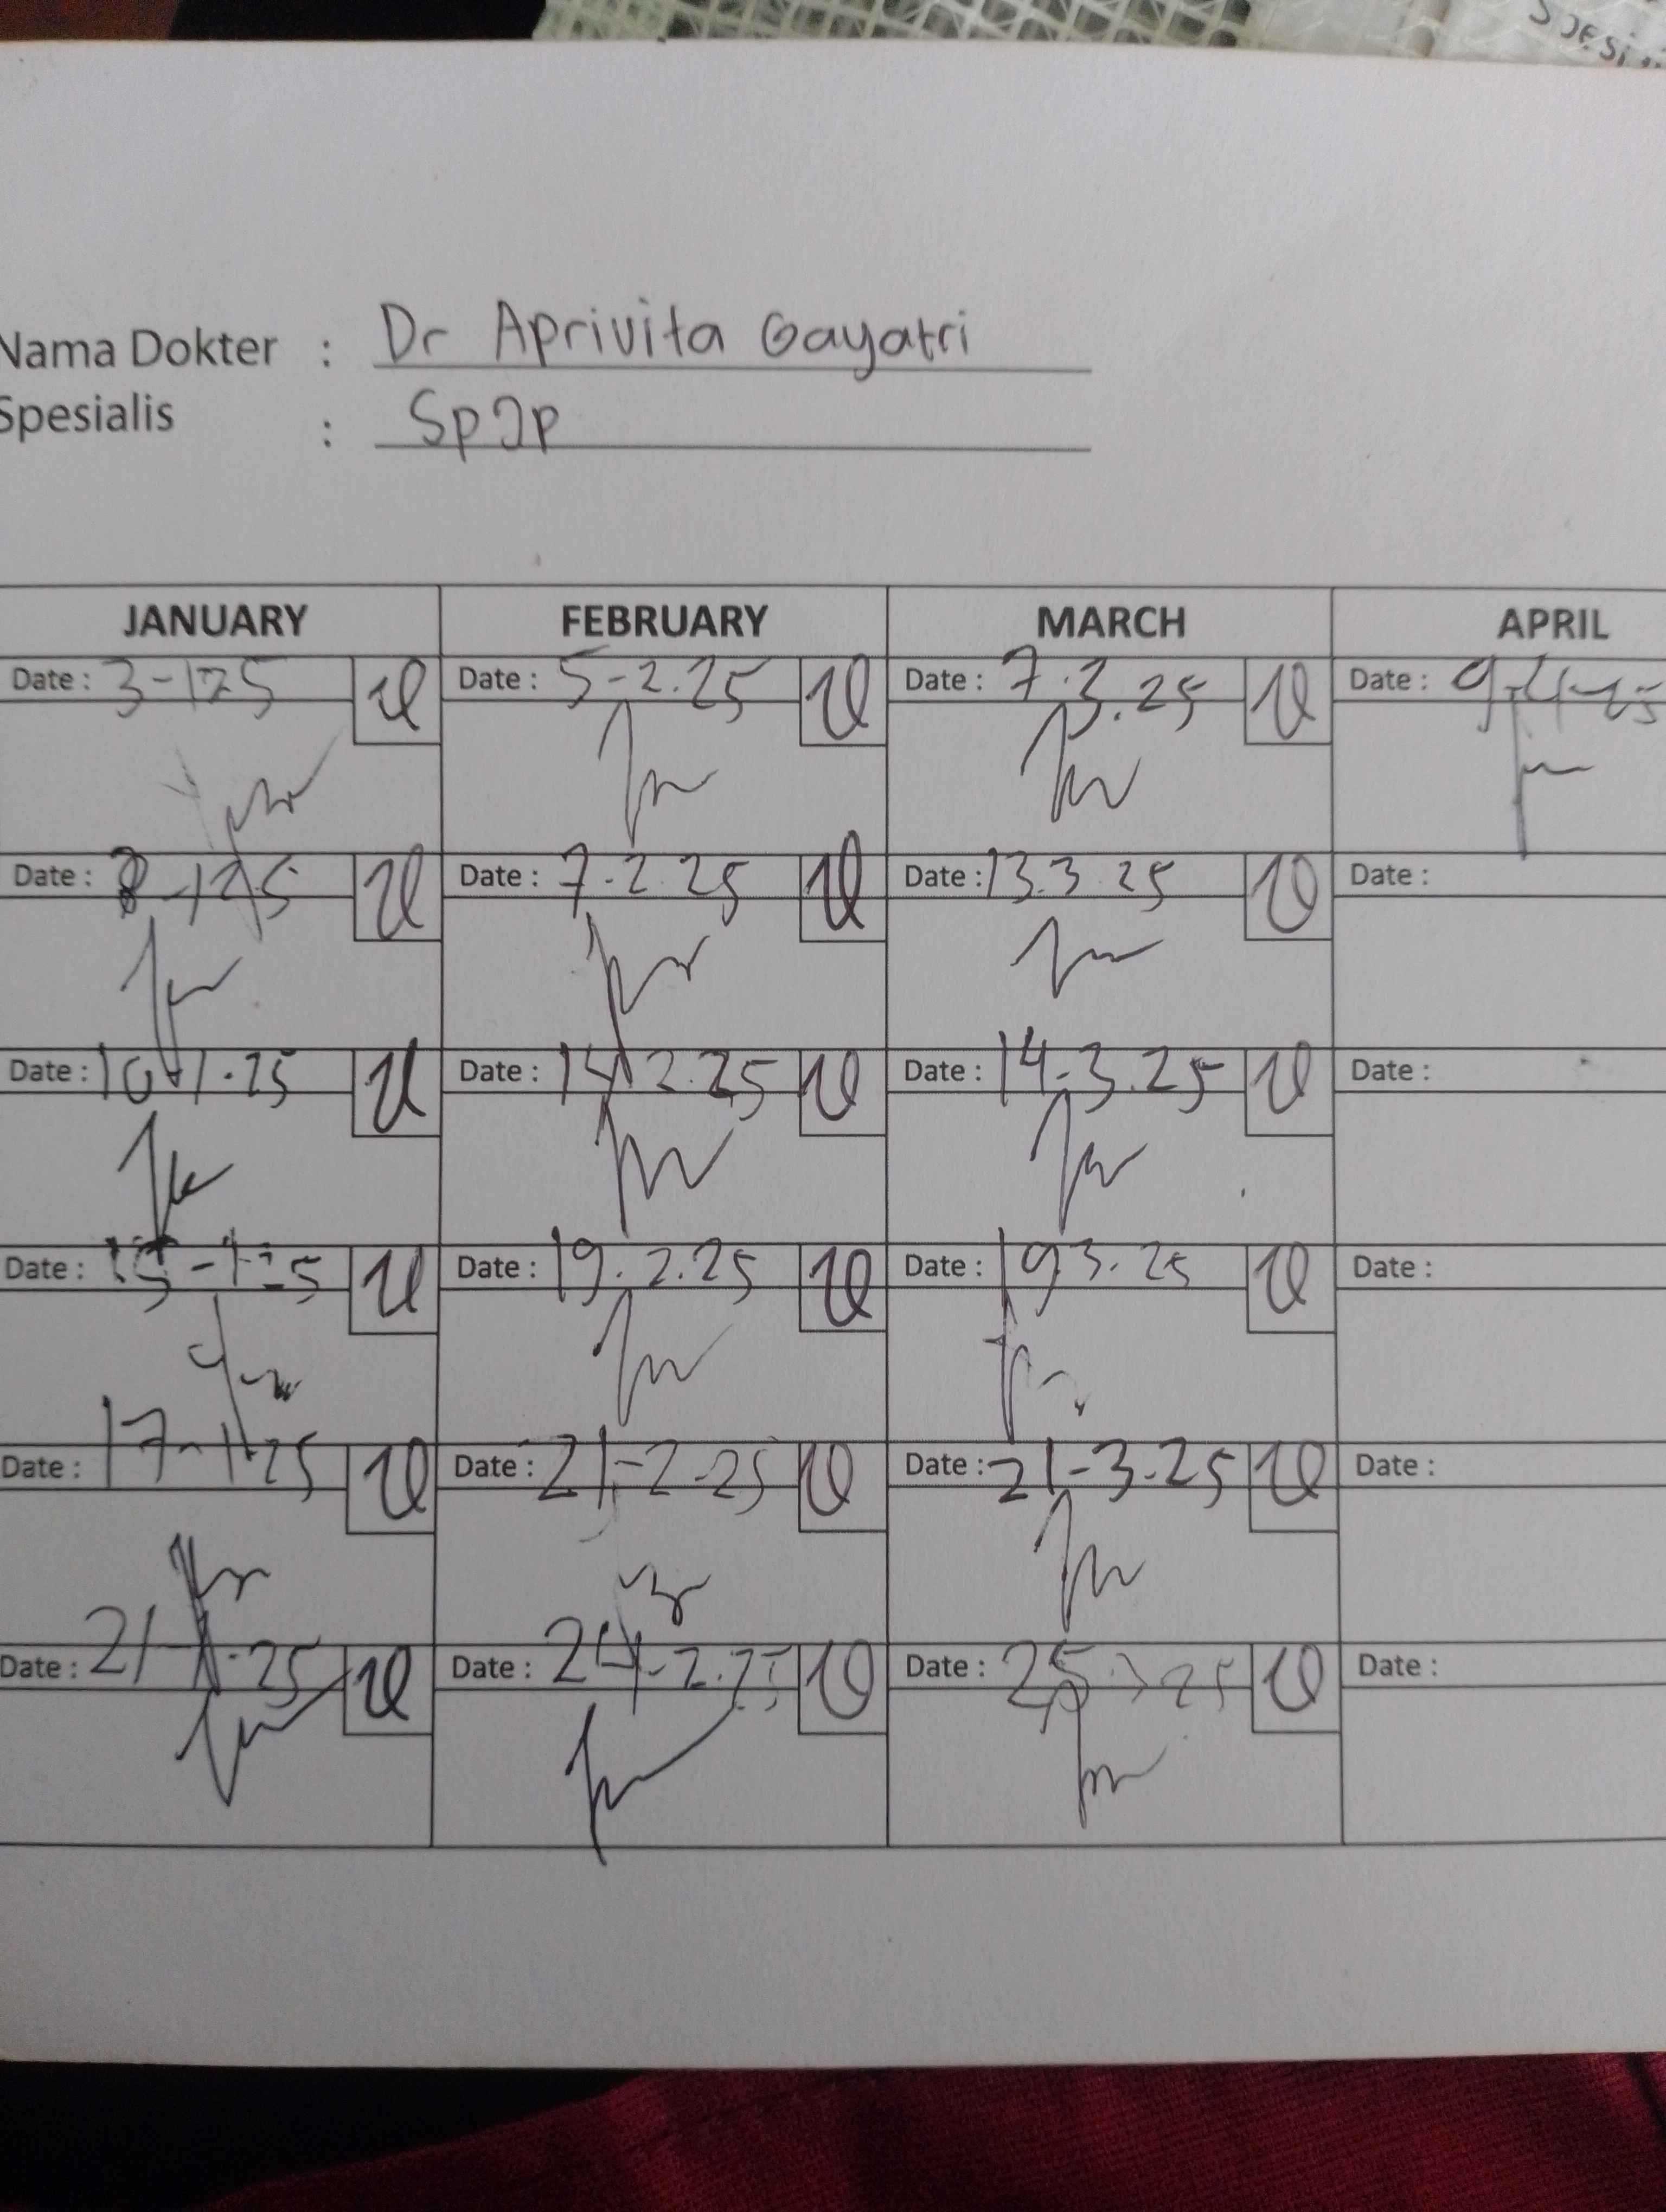 Spesi
Nama Dokter : Dr Aprivita Gayatri
Spesialis : SpJp
JANUARY FEBRUARY MARCH APRIL
Date : 3-125 Date : 5-2.25 Date : 7.3.25 Date : 9-4-25
Date : 8-125 Date : 7.2.25 Date : 13.3 25 Date :
Date : 10-1.25 Date : 14 2.25 Date : 14.3.25 Date :
Date : 15-1-25 Date : 19.2.25 Date : 193.25 Date :
Date : 17-1-25 Date : 21-2-25 Date : 21-3-25 Date :
Date : 21-1-25 Date : 24-2.25 Date : 25 3 25 Date :